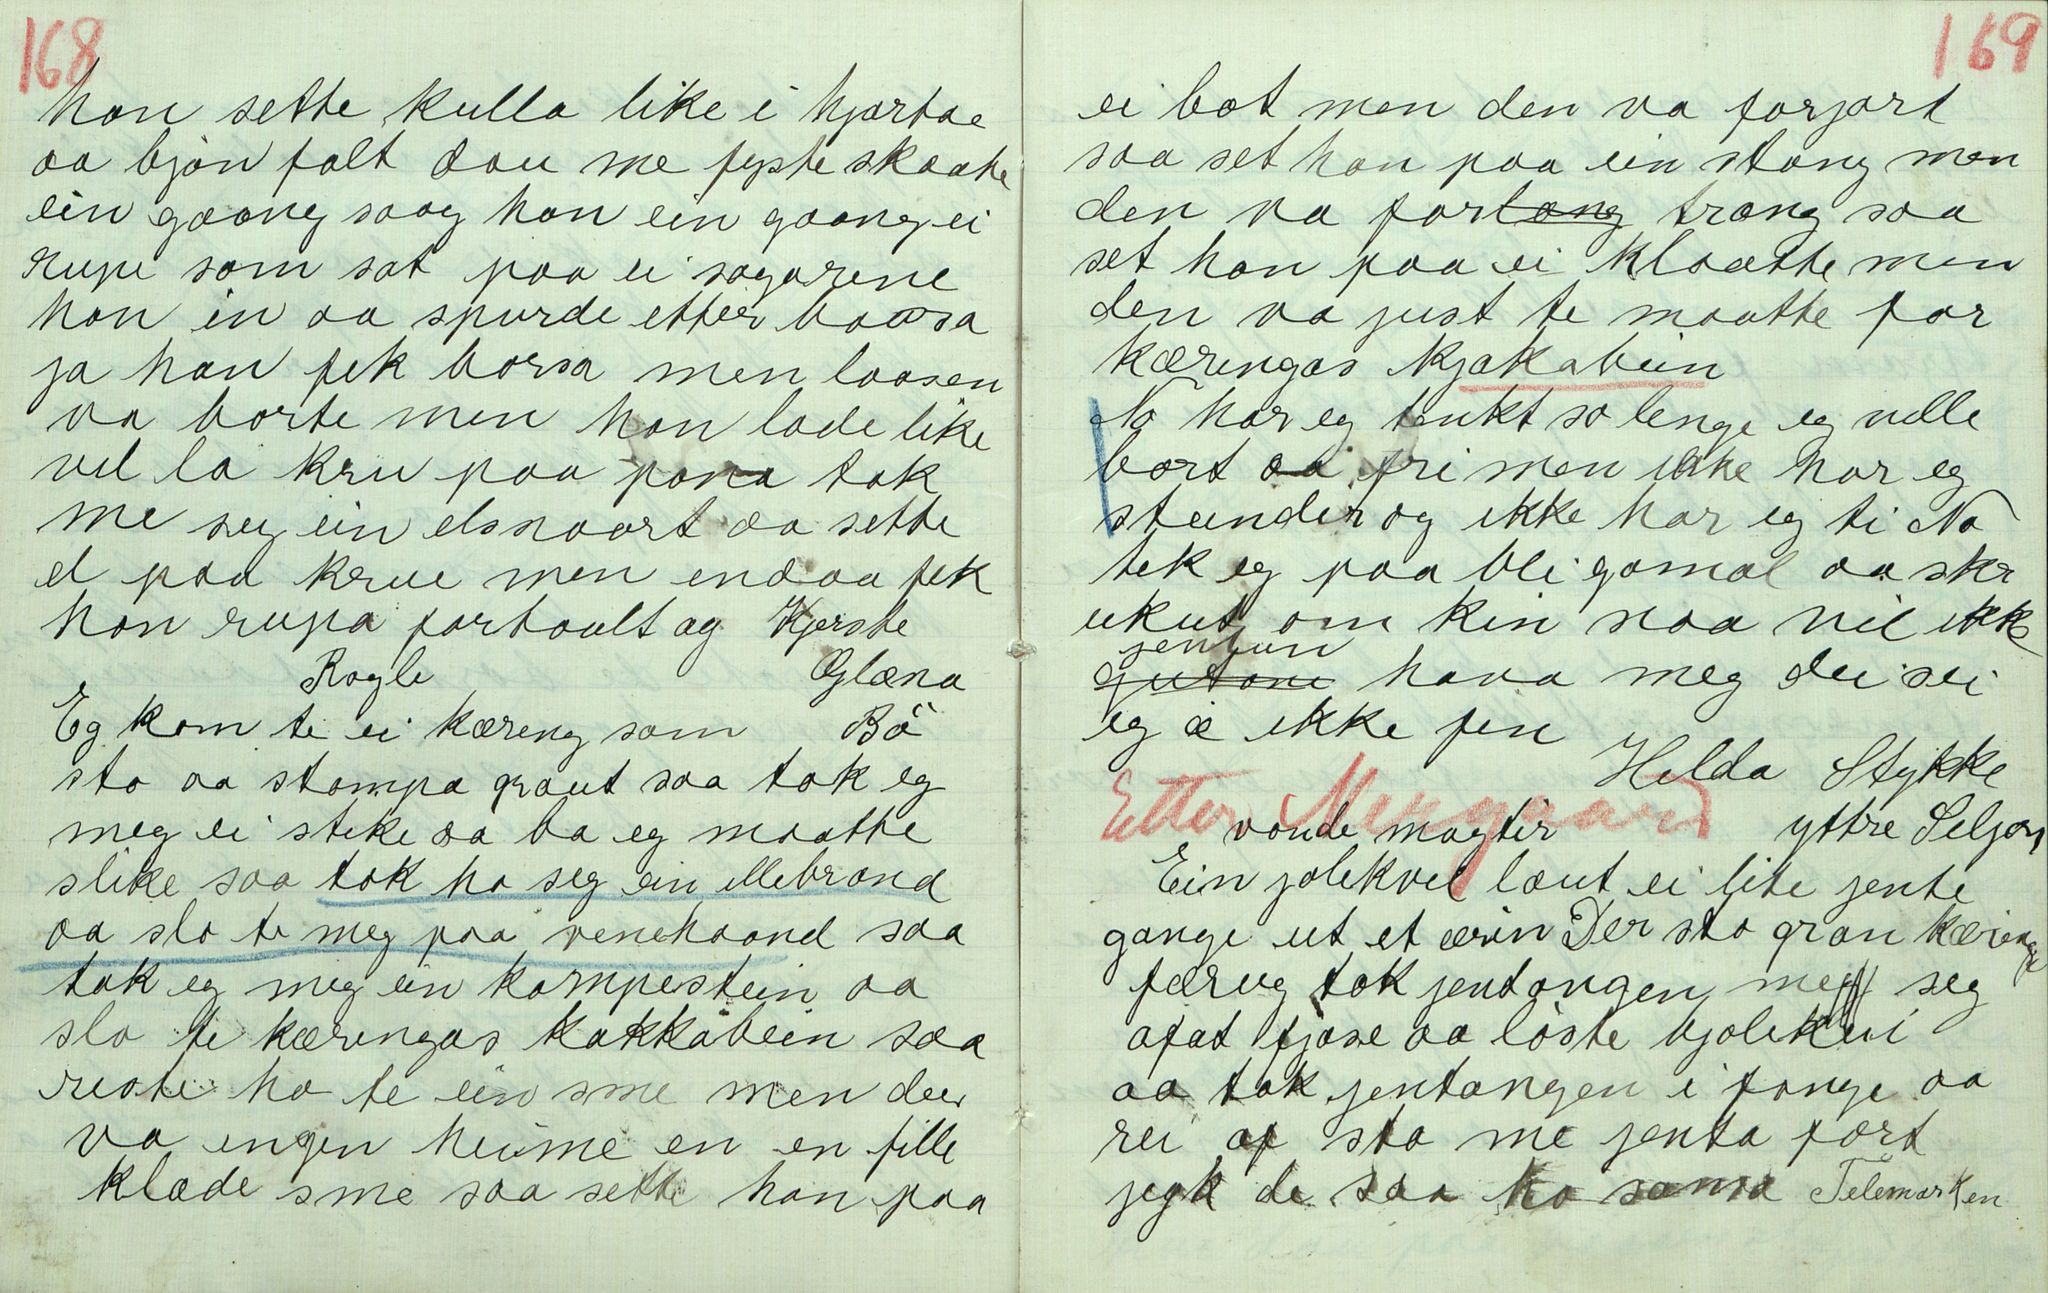 168
han sette kulla like i hjartae
aa bjön falt dau me fyste skaate
ein gaang saag han ein gaang ei
rupe som sat paa ei sagarene
han in aa spurde etter baarsa
ja han fek borsa men laasen
va borte men han lade like
vel la kru paa pana tok
me seg ein elsnaart aa sette
el paa krue men endaa fek
han rupa fortoult ag Kjerste
Rogle Glæna
Eg kom te ei kæreng som Bö
sto aa stampa graut saa tok eg
meg ei steke aa ba eg maatte
slike saa tok ho seg ein ellebrand
aa slo te meg paa venehaand saa
tok eg meg ein kampestein aa
slo te kærengas kakkabein saa
reiste ho te ein sme men der
va engen heime en en fille
klæde sme saa sette han paa
169
ei bot men den va forjort
saa set han paa ein stong men
den va fortong trong saa
set han paa ei kloætte men
den va just te maatte for
kærengas kjakabein
No har eg tenkt so lenge eg velle
bort aa fri men ikke har eg
stunder og ikke har eg ti No
tek eg paa bli gamal aa skr
ukut om kin snaa vil ikke
jentun
gutane hava meg dei sei
eg æ ikke fen
Helda Stykke
Etter Mengaard
vonde magter yttre Seljor
Ein jolekvel læut ei lite jente
gange ut et ærin Der sto gron kærenge
færug tok jentongen meg seg
afat fjøse aa löste bjoleku i
aa tok jentongen i fange aa
rei af sta me jenta fort
jegk de saa ho sansa Telemarken